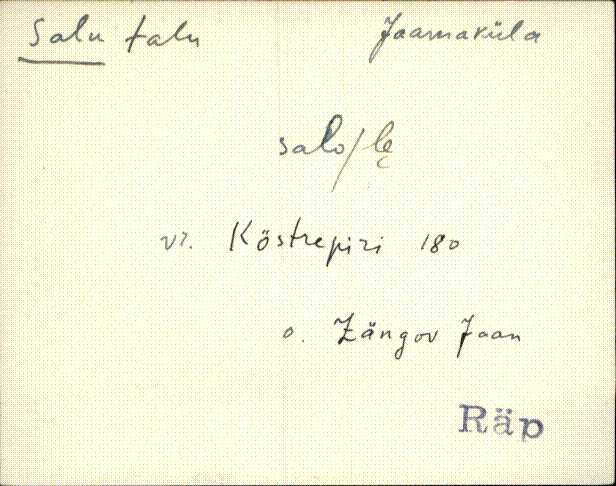 Salu talu Jaamaküla
salo/le̬
vr. Köstrepiri 180
o. Zängov Jaan
Räp